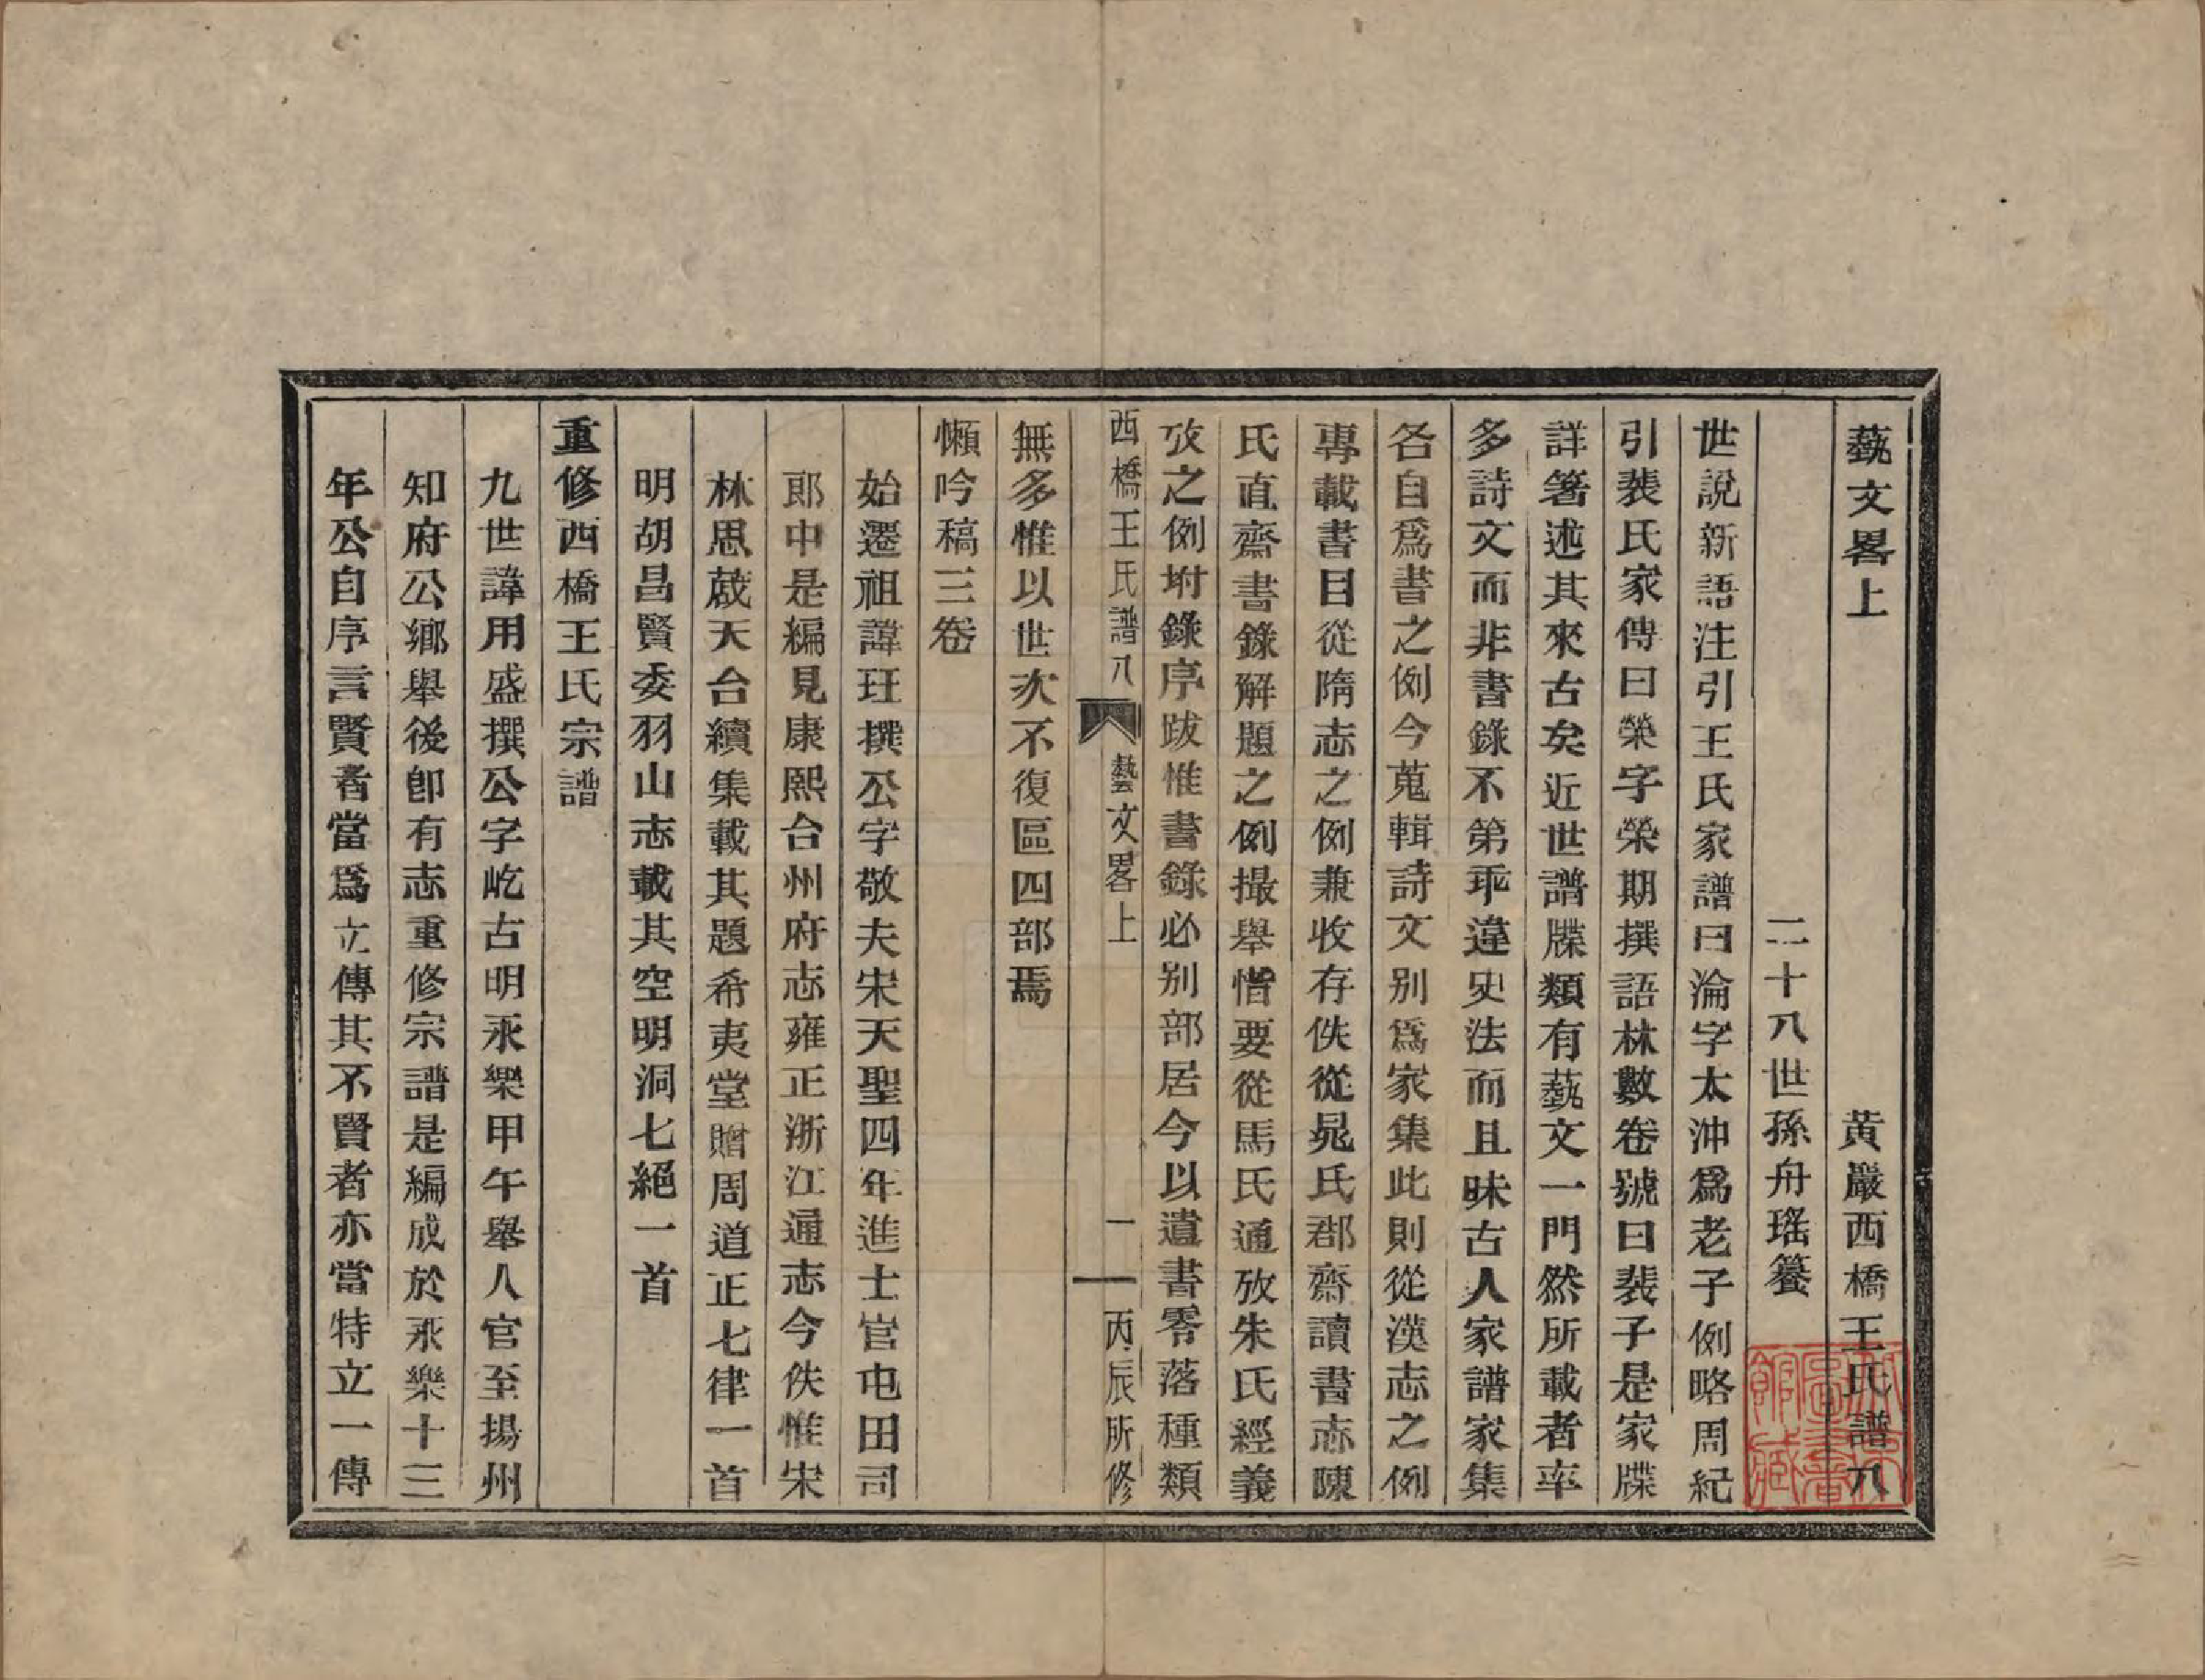 藝文畧上　黃巖西橋王氏譜八
二十八世孫舟瑤纂
世說新語注引王氏家譜曰淪字太沖爲老子例略周紀
引裴氏家傳曰榮字榮期撰語林數卷號曰裴子是家牒
詳箸述其來古矣近世譜牒類有藝文一門然所載者率
多詩文而非書錄不第乖違史法而且昧古人家譜家集
各自爲書之例今蒐輯詩文別爲家集此則從漢志之例
專載書目從隋志之例兼收存佚從晁氏郡齋讀書志陳
氏直齋書錄解題之例撮舉恉要從馬氏通攷朱氏經義
攷之例坿錄序跋惟書錄必別部居今以遺書零落種類
西橋王氏譜八　藝文畧上　一　丙辰所修
無多惟以世次不復區四部焉
懶吟稿三卷
始遷祖諱玨撰公字敬夫宋天聖四年進士官屯田司
郎中是編見康熙台州府志雍正浙江通志今佚惟宋
林思蒧天台續集載其題希夷堂贈周道正七律一首
明胡昌賢委羽山志載其空明洞七絕一首
重修西橋王氏宗譜
九世諱用盛撰公字屹古明永樂甲午舉人官至揚州
知府公鄉舉後卽有志重修宗譜是編成於永樂十三
年公自序言賢者當爲立傳其不賢者亦當特立一傳